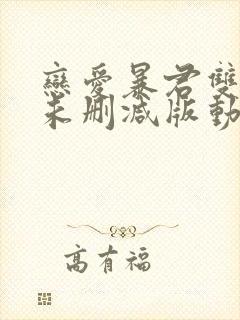 戀愛暴君雙
未刪減版動
高有福